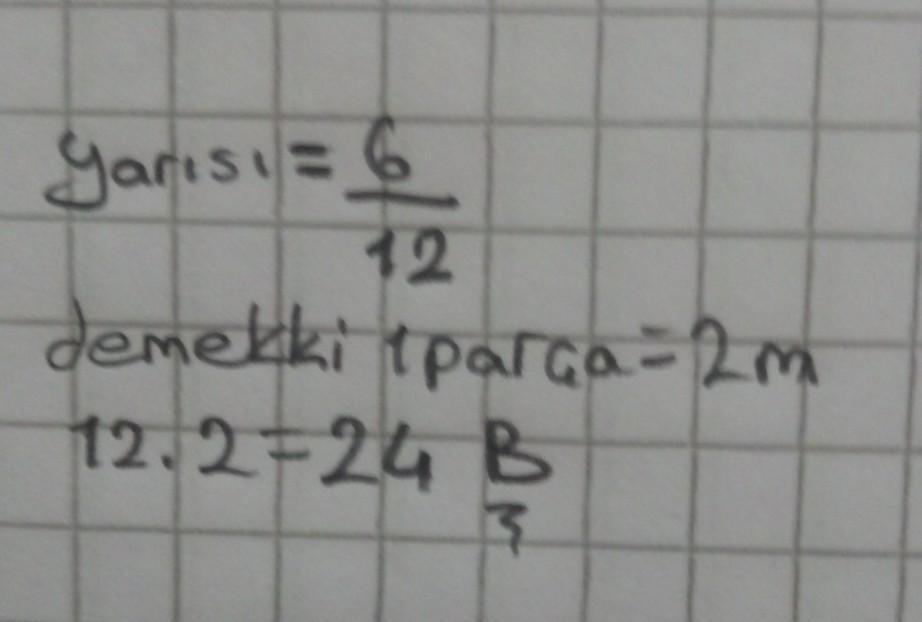 yarısı = 6/12
demekki 1 parça = 2m
12.2 = 24 B